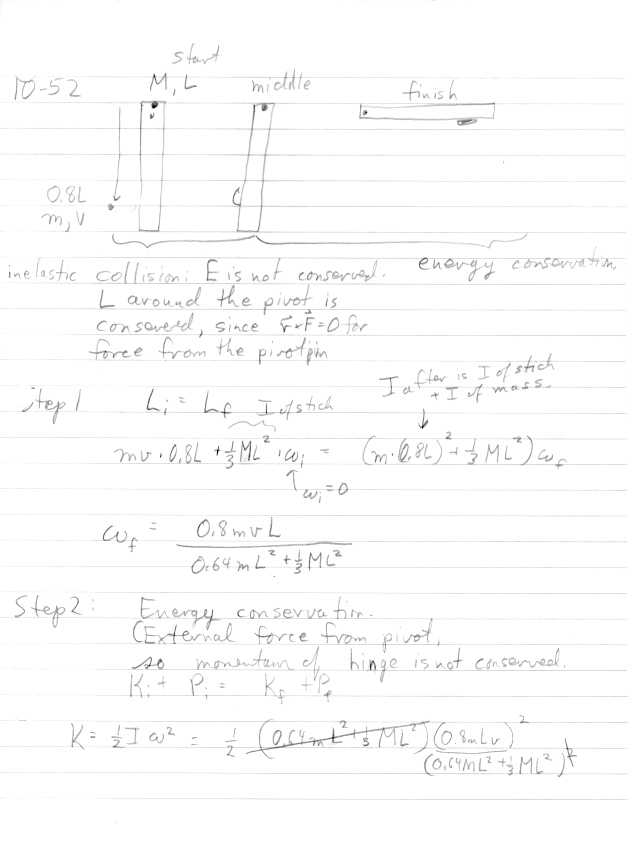 start
10-52 M, L middle finish
0.8L
m, v
inelastic collision: E is not conserved. energy conservation,
L around the pivot is
conseverd, since r⃗×F⃗=0 for
force from the pivot pin
step 1 Li = Lf I of stich I after is I of stich
+ I of mass.
mv · 0.8L + 1/3 ML² · ωi = (m·(0.8L)² + 1/3 ML²) ωf
ωi=0
ωf = 0.8mvL / (0.64mL² + 1/3 ML²)
Step 2: Energy conservation.
(External force from pivot,
so momentum of hinge is not conserved.
Ki + Pi = Kf + Pf
K = 1/2 I ω² = 1/2 (0.64mL² + 1/3 ML²) (0.8mLv)² / (0.64ML² + 1/3 ML²)²